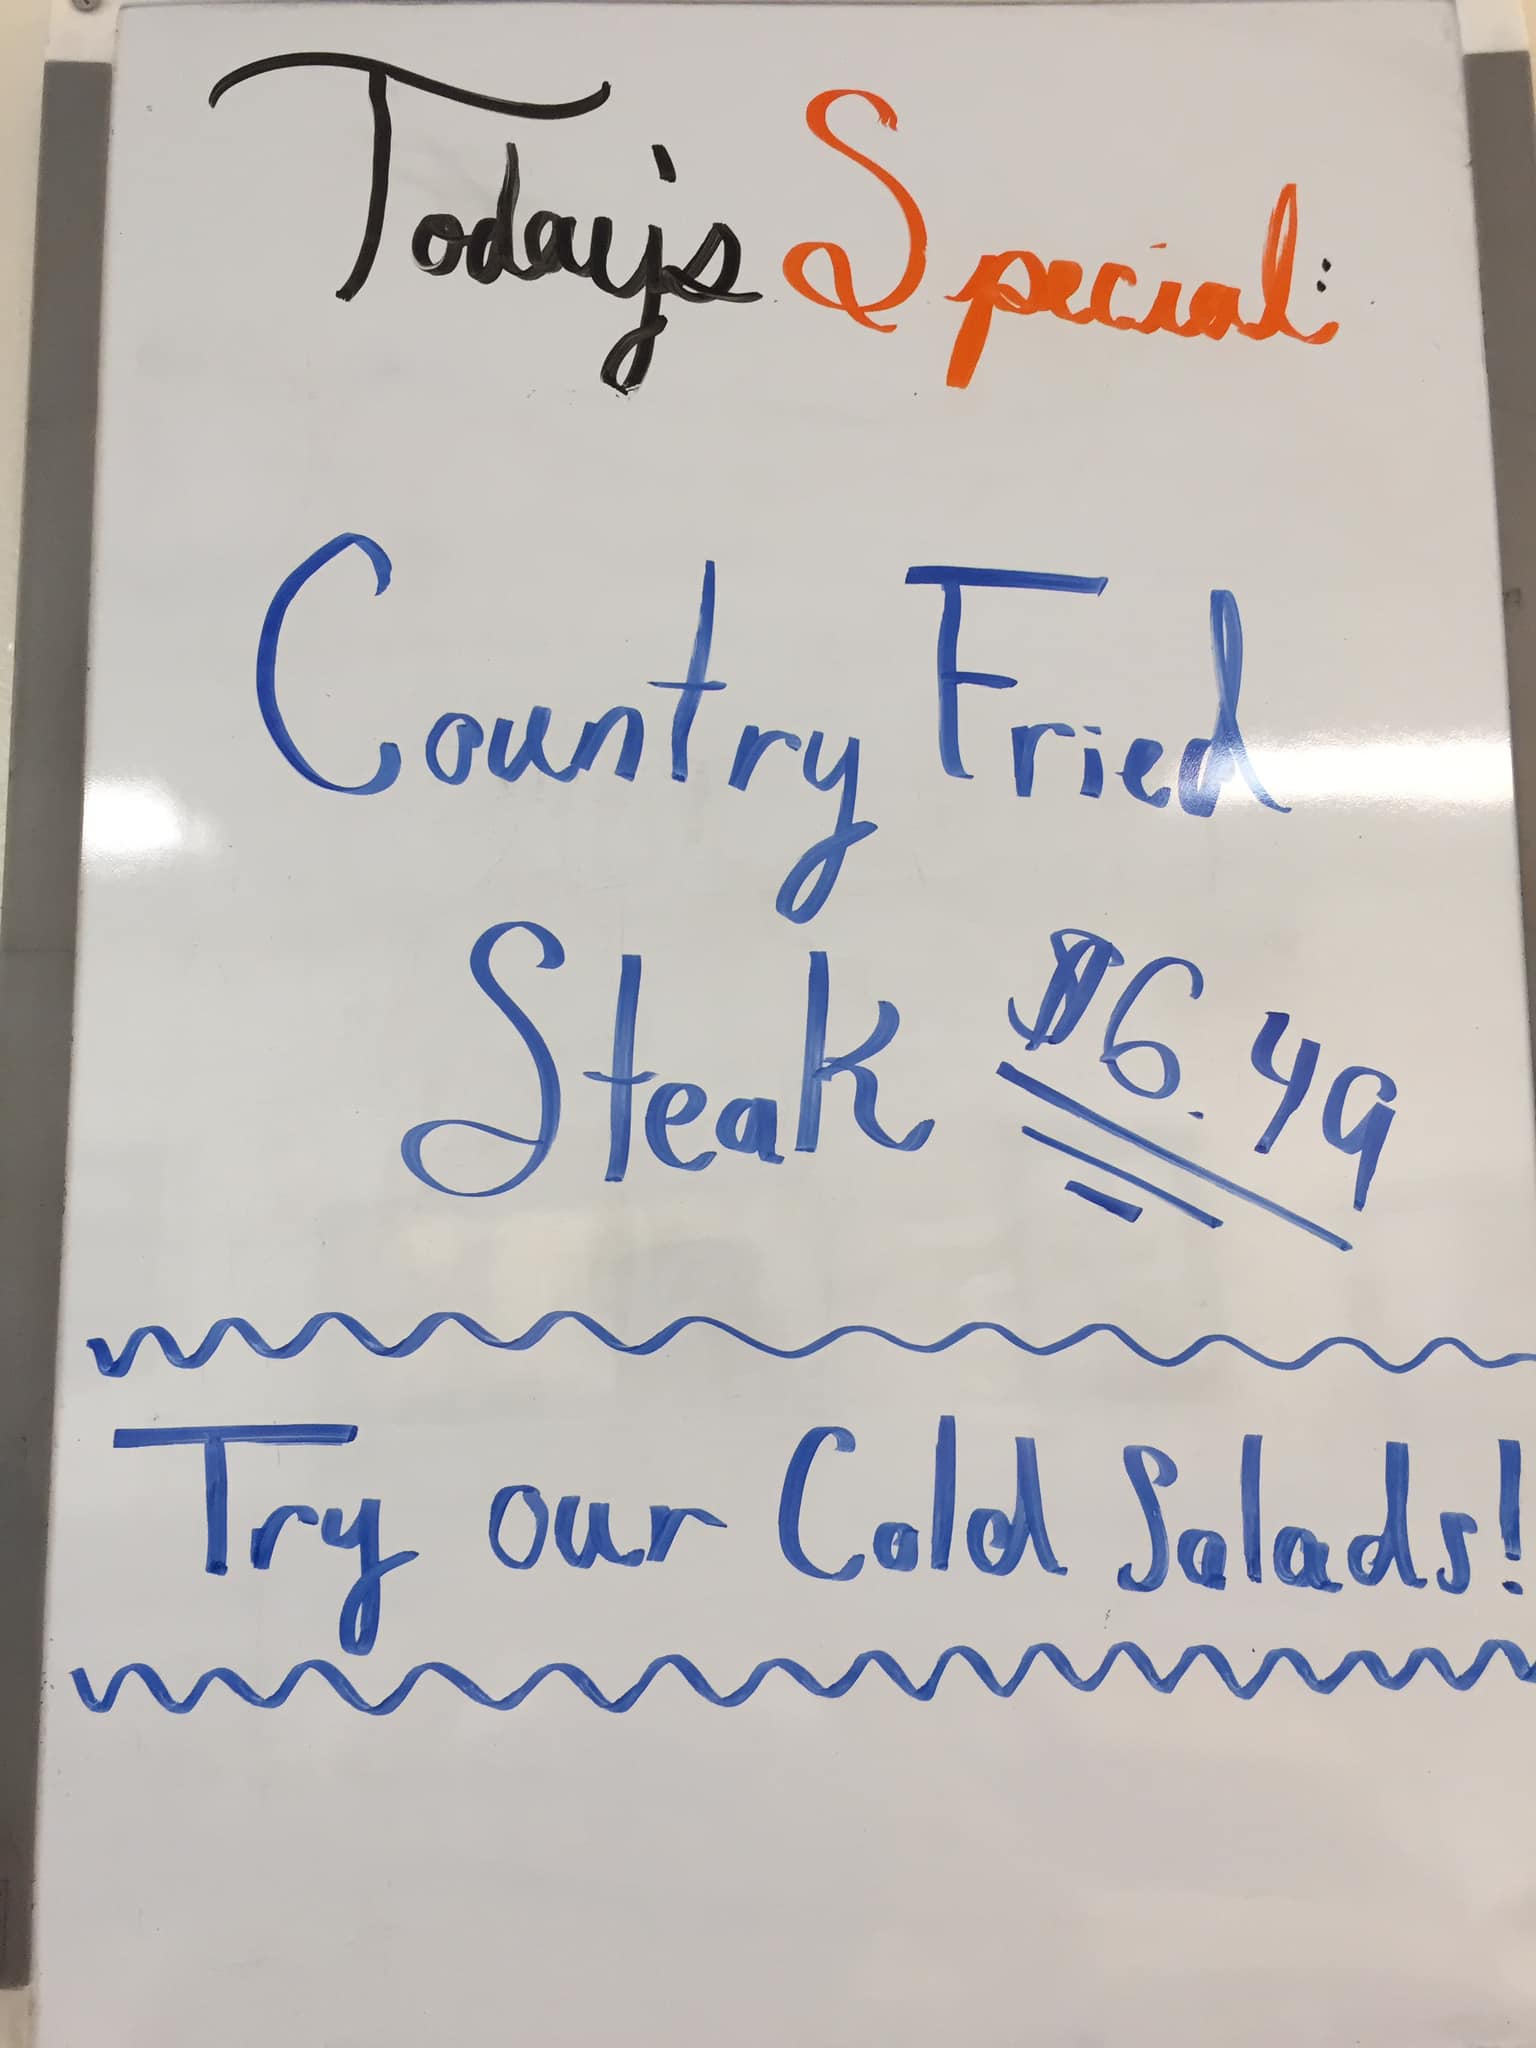 Today's Special:
Country Fried
Steak $6.49
Try our Cold Salads!